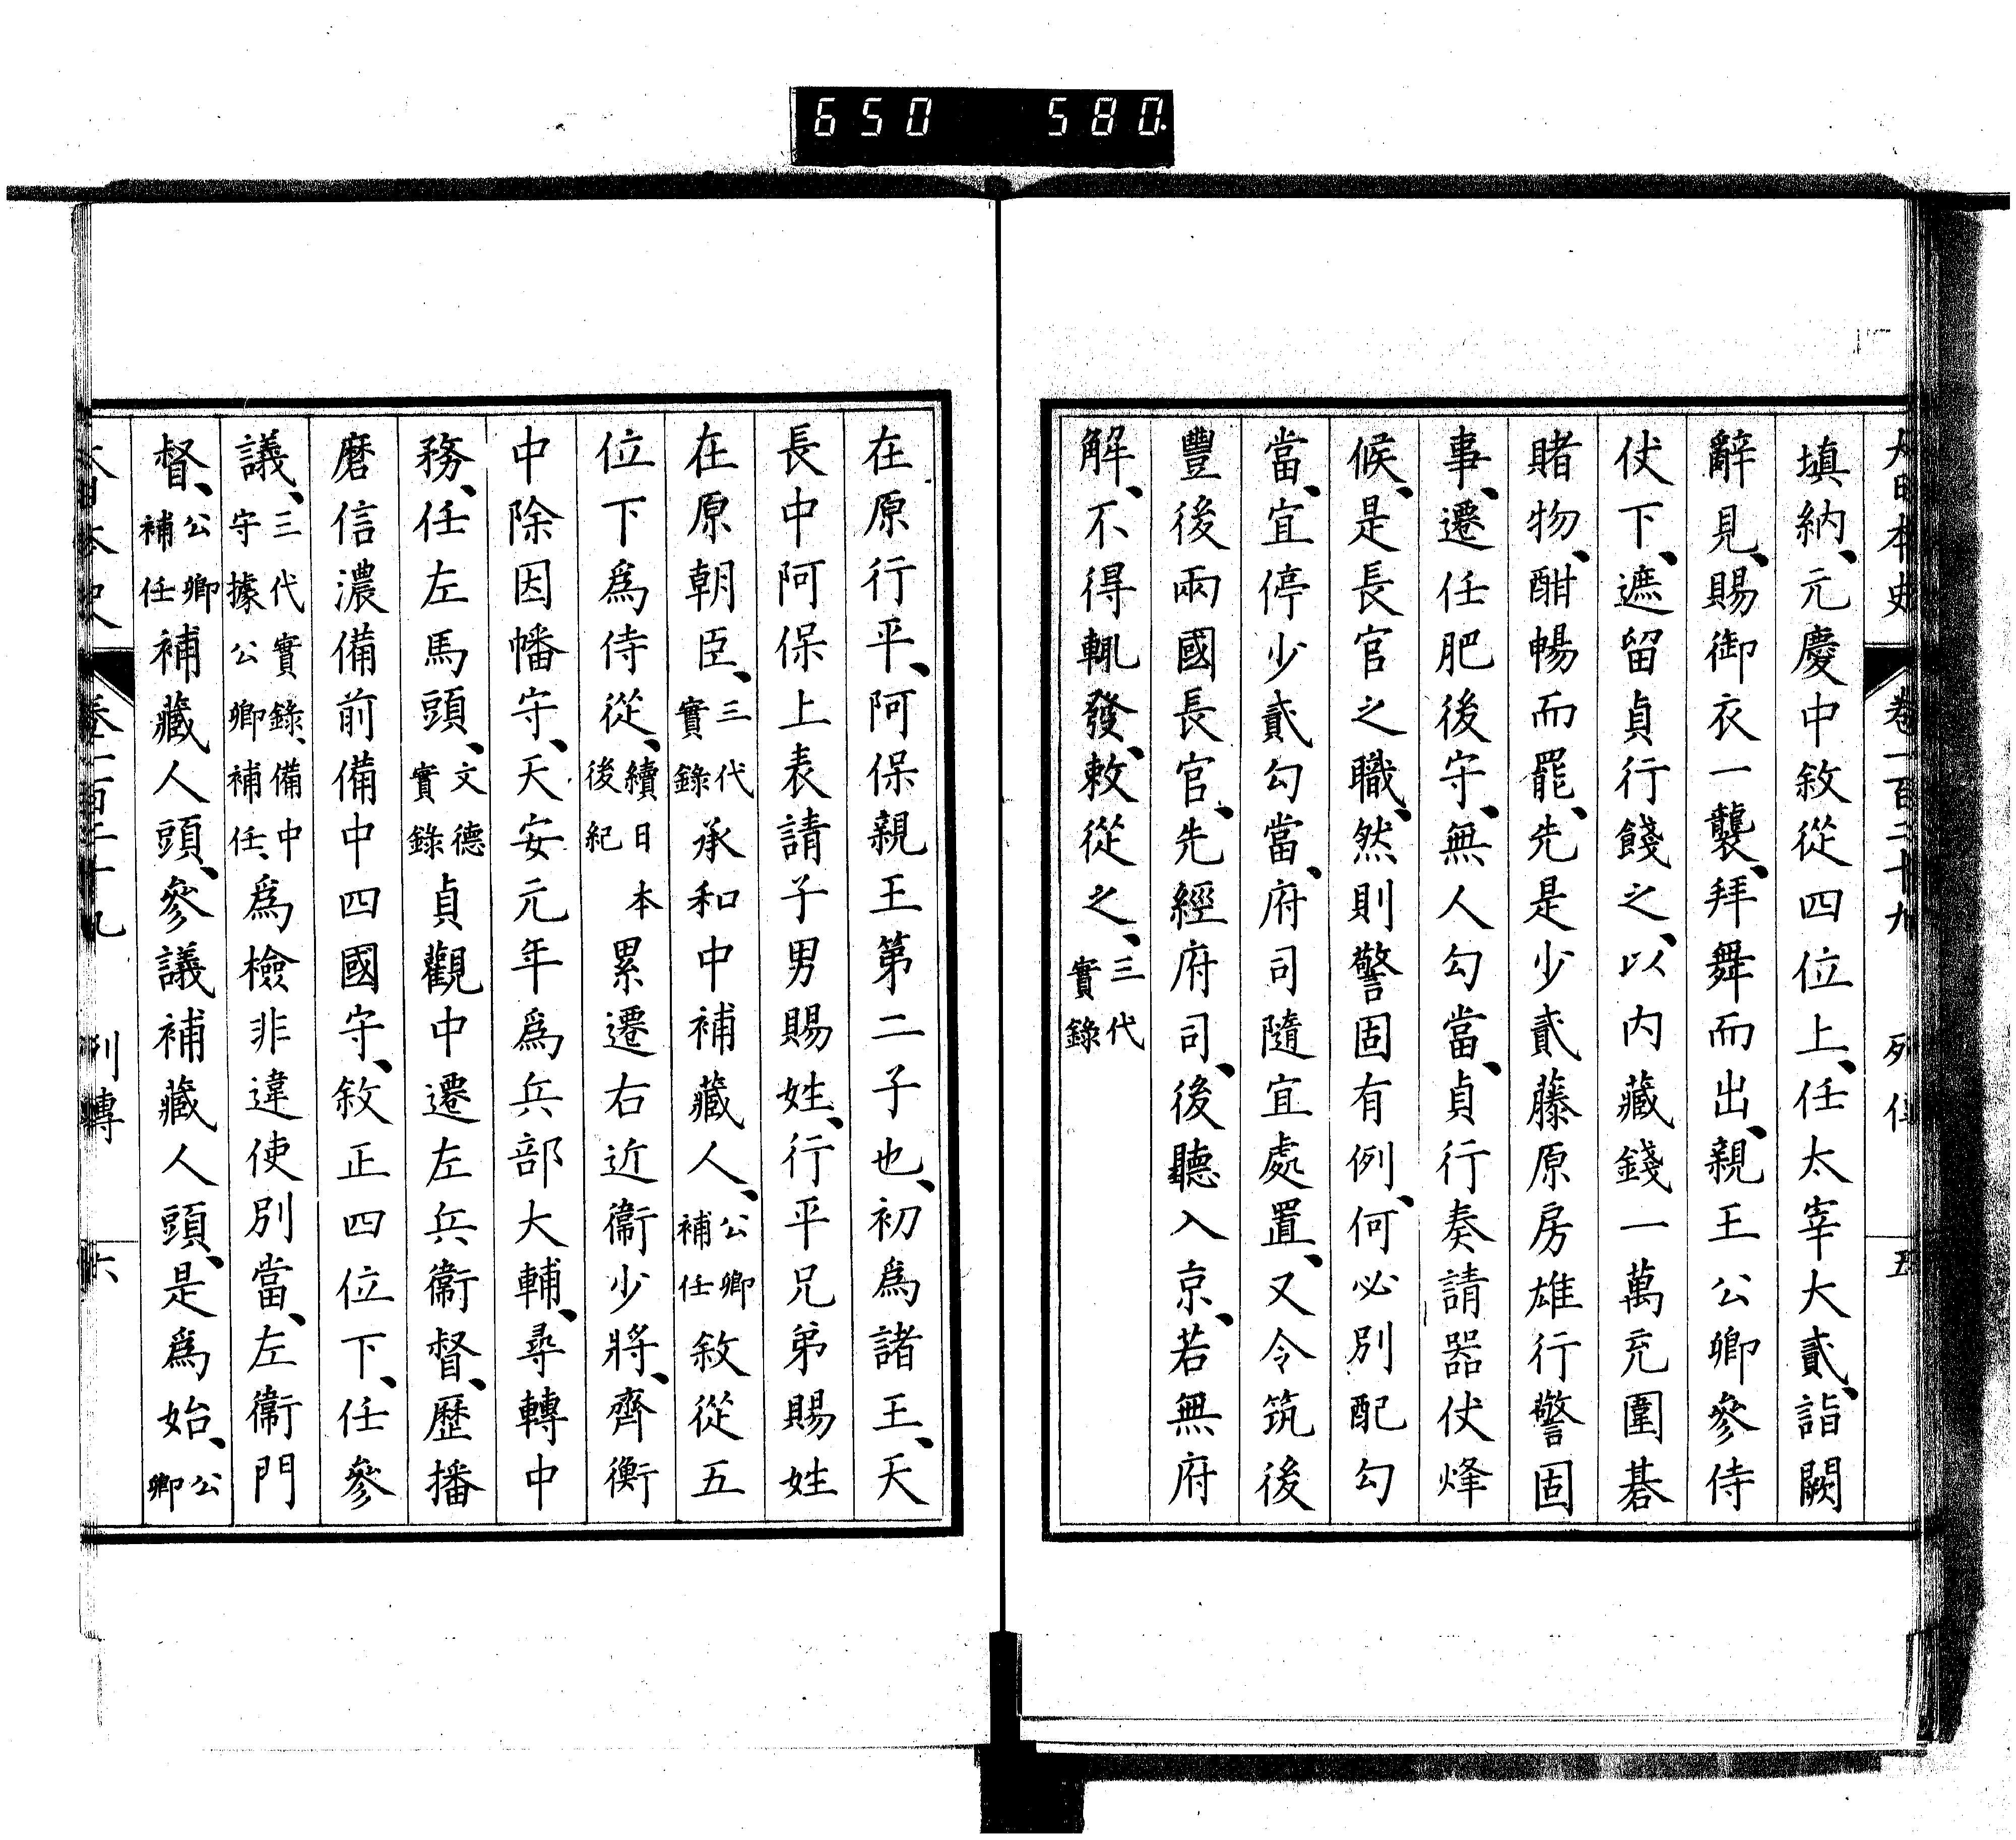 650 580.
大日本史 卷一百二十九 列傳 五
填納、元慶中敘從四位上、任太宰大貳、詣闕
辭見、賜御衣一襲、拜舞而出、親王公卿參侍
仗下、遮留貞行餞之、以内藏錢一萬充圍碁
賭物、酣暢而罷、先是少貳藤原房雄行警固
事、遷任肥後守、無人勾當、貞行奏請器仗烽
候、是長官之職、然則警固有例、何必別配勾
當、宜停少貳勾當、府司隨宜處置、又令筑後
豐後兩國長官、先經府司、後聽入京、若無府
解、不得輒發、敕從之、三代實錄
在原行平、阿保親王第二子也、初爲諸王、天
長中阿保上表請子男賜姓、行平兄弟賜姓
在原朝臣、三代實錄承和中補藏人、公卿補任敘從五
位下爲侍從、續日本後紀累遷右近衞少將、齊衡
中除因幡守、天安元年爲兵部大輔、尋轉中
務、任左馬頭、文德實錄貞觀中遷左兵衞督、歷播
磨信濃備前備中四國守、敘正四位下、任參
議、三代實錄、備中守據公卿補任、爲檢非違使別當、左衞門
督、公卿補任補藏人頭、參議補藏人頭、是爲始、公卿
大日本史 卷一百二十九 列傳 六